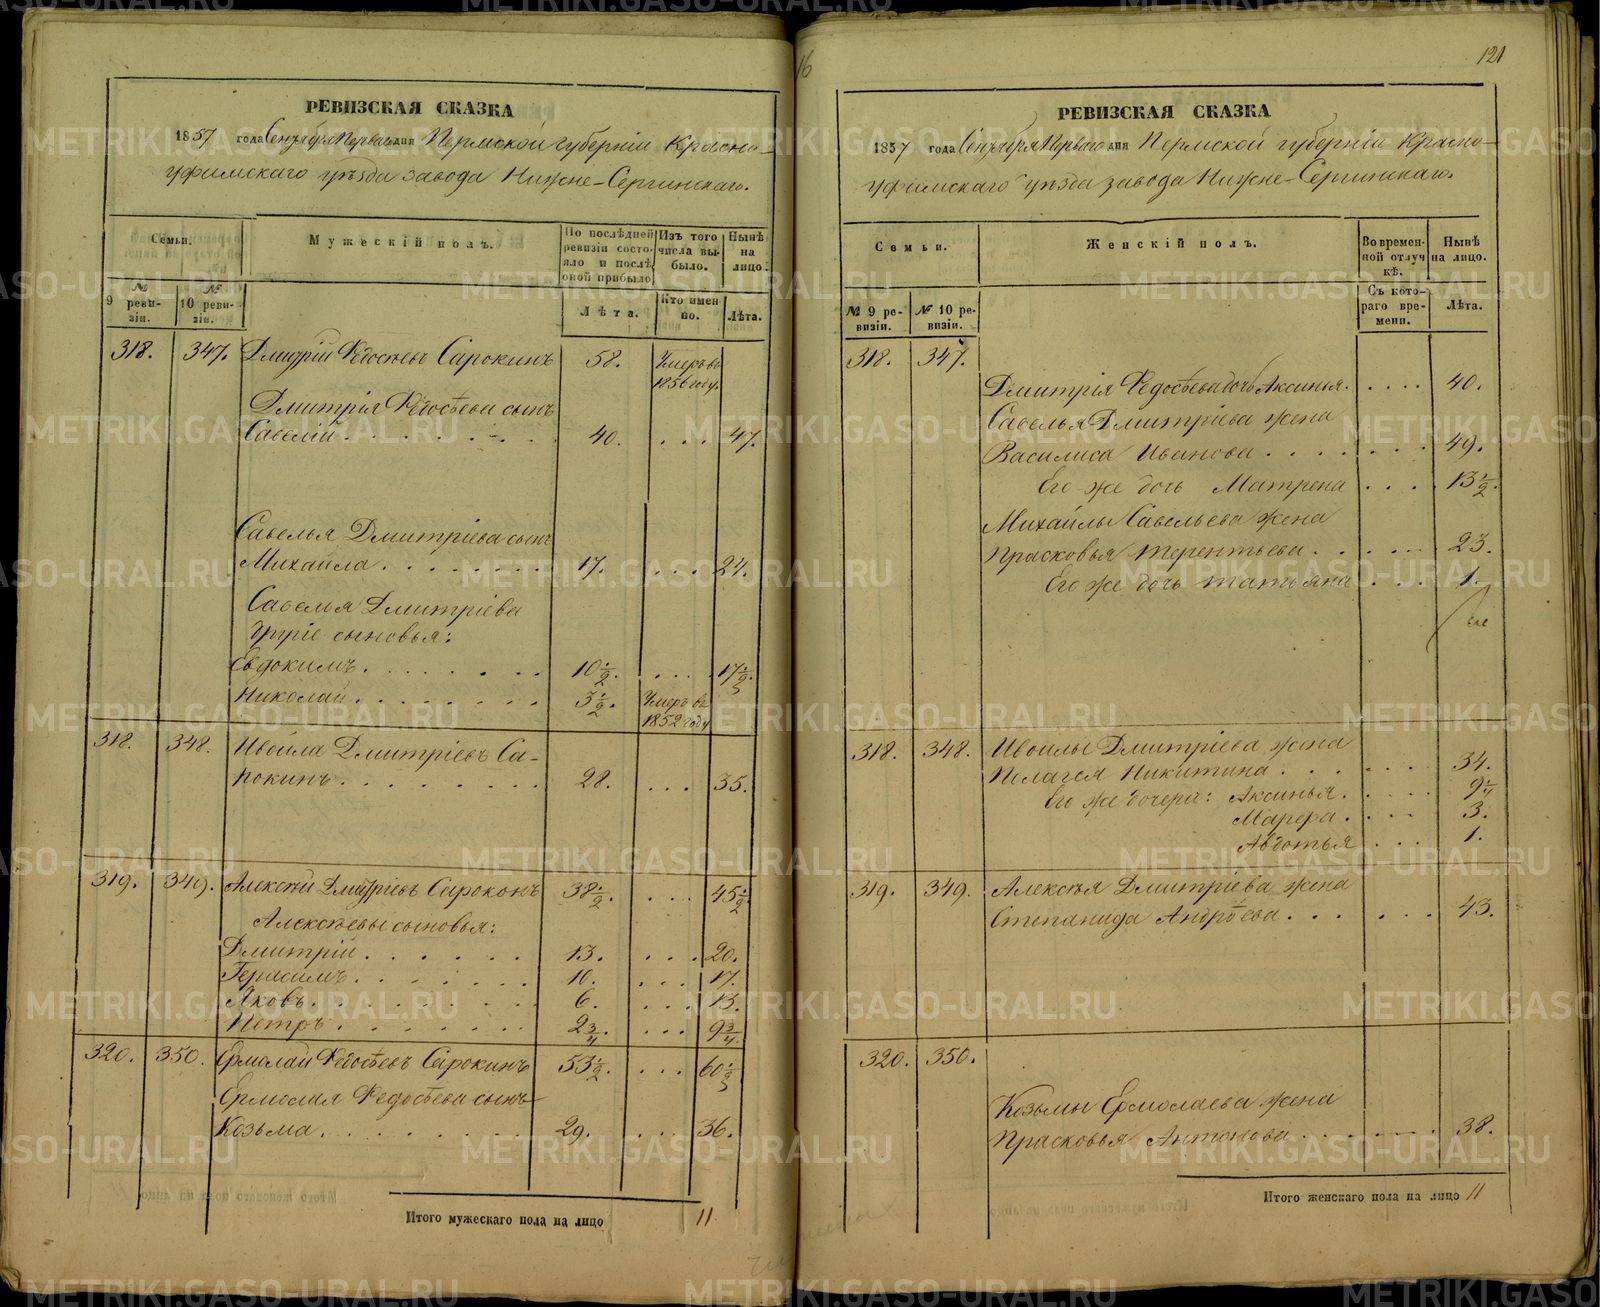 16
РЕВИЗСКАЯ СКАЗКА
1857 года Сентября Перваго дня Пермской губерніи Красно-
уфимскаго уѣзда завода Нижне-Сергинскаго.
Семьи.
Мужескій полъ.
По послѣдней ревизіи состояло и послѣ оной прибыло
Изъ того числа выбыло.
Нынѣ на лицо.
№ 9 ревизіи.
№ 10 ревизіи.
Лѣта.
Кто именно.
Лѣта.
318. 347. Дмитрій Ѳедосѣевъ Сарокинъ 58. Умеръ въ 1856 году.
Дмитрія Ѳедосѣева сынъ
Савелій 40. 47.
Савелья Дмитріева сынъ
Михайла 17. 24.
Савелья Дмитріева
другіе сыновья:
Евдокимъ 10 1/2 17 1/2
Николай 3 1/2. Умеръ въ 1852 году
318. 348. Ивойла Дмитріевъ Са-
рокинъ 28. 35.
319. 349. Алексѣй Дмитріевъ Сарокинъ 38 1/2. 45 1/2
Алексѣевы сыновья:
Дмитрій 13. 20.
Герасимъ 10. 17.
Яковъ 6. 13.
Петръ 2 3/4. 9 3/4.
320. 350. Ермолай Ѳедосѣевъ Сарокинъ 53 1/2. 60 1/2
Ермолая Ѳедосѣева сынъ
Козьма 29. 36.
Итого мужескаго пола на лицо 11.
121
РЕВИЗСКАЯ СКАЗКА
1857 года Сентября Перваго дня Пермской губерніи Красно-
уфимскаго уѣзда завода Нижне-Сергинскаго.
Семьи.
Женскій полъ.
Во временной отлучкѣ.
Нынѣ на лицо.
№ 9 ревизіи.
№ 10 ревизіи.
Съ котораго времени.
Лѣта.
318. 347.
Дмитрія Ѳедосѣева дочь Аксинья. 40.
Савелья Дмитріева жена
Василиса Иванова 49.
Его же дочь Матрена 13 1/2.
Михайлы Савельева жена
Прасковья Терентьева 23.
Его же дочь Татьяна 1.
318. 348. Ивойлы Дмитріева жена
Полагея Никитина 34.
Его же дочери: Аксинья. 9 1/4
Марфа. 3.
Авдотья 1.
319. 349. Алексѣя Дмитріева жена
Степанида Андрѣева 43.
320. 350.
Козьмы Ермолаева жена
Прасковья Антонова 38.
Итого женскаго пола на лицо 11
METRIKI.GASO-URAL.RU